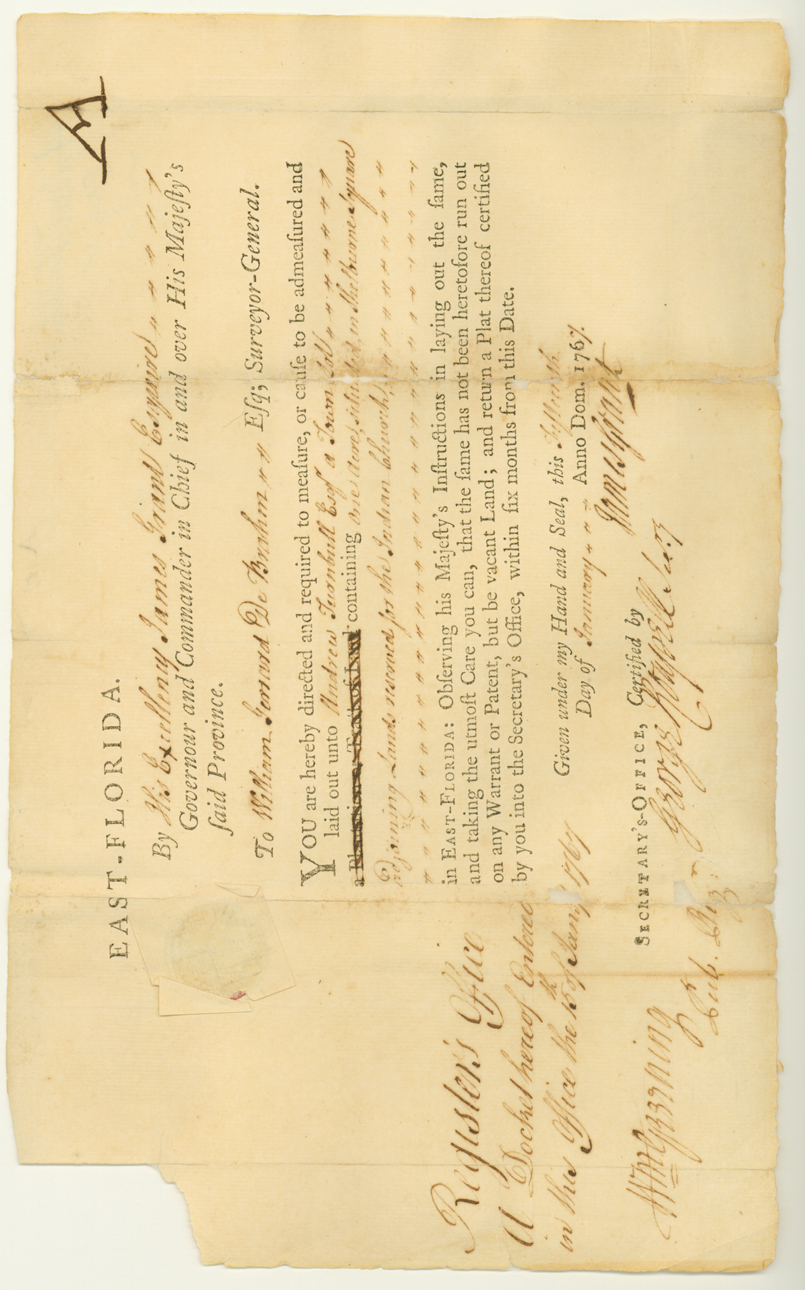 A
EAST-FLORIDA.
By His Excellency James Grant Esquire
Governour and Commander in Chief in and over His Majeſty's
ſaid Province.
To William Gerrard De Brahm Eſq; Surveyor-General.
YOU are hereby directed and required to meaſure, or cauſe to be admeaſured and
laid out unto Andrew Turnbull Esqr a Town Lott
a Plantation or Tract of Land containing one acre situated in Shelburne Square
Adjoining Lands reserved for the Indian Church,
in EAST-FLORIDA: Obſerving his Majeſty's Inſtructions in laying out the ſame,
and taking the utmoſt Care you can, that the ſame has not been heretofore run out
on any Warrant or Patent, but be vacant Land; and return a Plat thereof certified
by you into the Secretary's Office, within ſix months from this Date.
Given under my Hand and Seal, this fifteenth
Day of January Anno Dom. 1767.
James Grant
SECRETARY'S-OFFICE, Certified by
George
Register's Office
A Docket hereof Entered
in this Office the 15th of Jany 1767
Wm